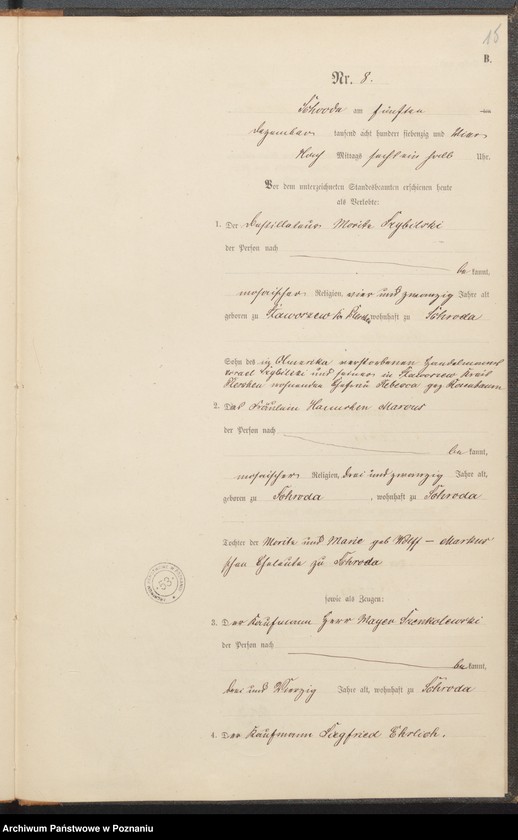 15
B.
Nr. 8.
Schroda am fünften
Dezember tausend acht hundert siebenzig und
Nach Mittags sechs ein halb Uhr.
Vor dem unterzeichneten Standesbeamten erschienen heute
als Verlobte:
1. Der Destillateur Moritz Szybilski
der Person nach
bekannt,
mosaischer Religion, vier und zwanzig Jahre alt
geboren zu wohnhaft zu Schroda
Sohn des in Amerika verstorbenen Handelsmanns
Israel Szybilski und seiner in Kreis
Pleschen wohnenden Ehefrau Rebecca geb Rosenbaum
2. Das Fräulein Haennchen Marcus
der Person nach
bekannt,
mosaischer Religion, drei und zwanzig Jahre alt,
geboren zu Schroda, wohnhaft zu Schroda
Tochter der Moritz und Marie geb Wolff – Markus
schen Eheleute zu Schroda
sowie als Zeugen:
53
3. Der Kaufmann Herr Mayer
der Person nach
bekannt,
drei und Vierzig Jahre alt, wohnhaft zu Schroda
4. Der Kaufmann Siegfried Ehrlich.
Archiwum Państwowe w Poznaniu